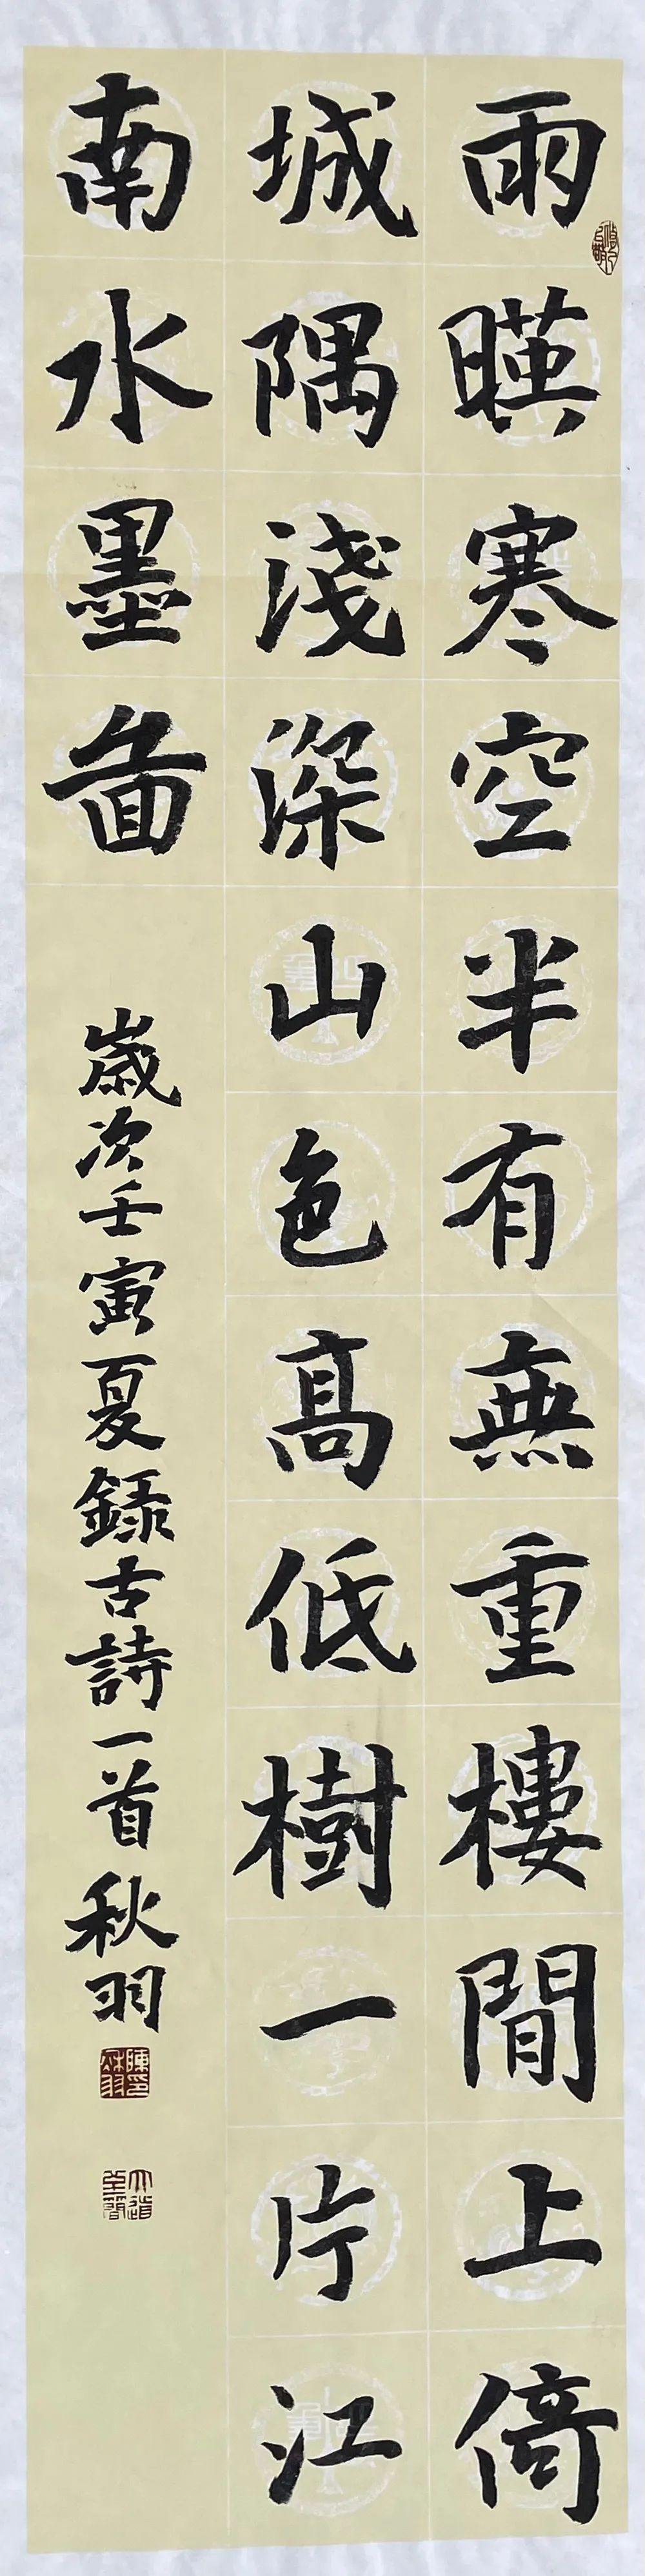 雨暎寒空半有無重樓閒上倚
城隅淺深山色高低樹一片江
南水墨啚
歲次壬寅夏錄古詩一首秋羽
陳秋羽印
大道至簡